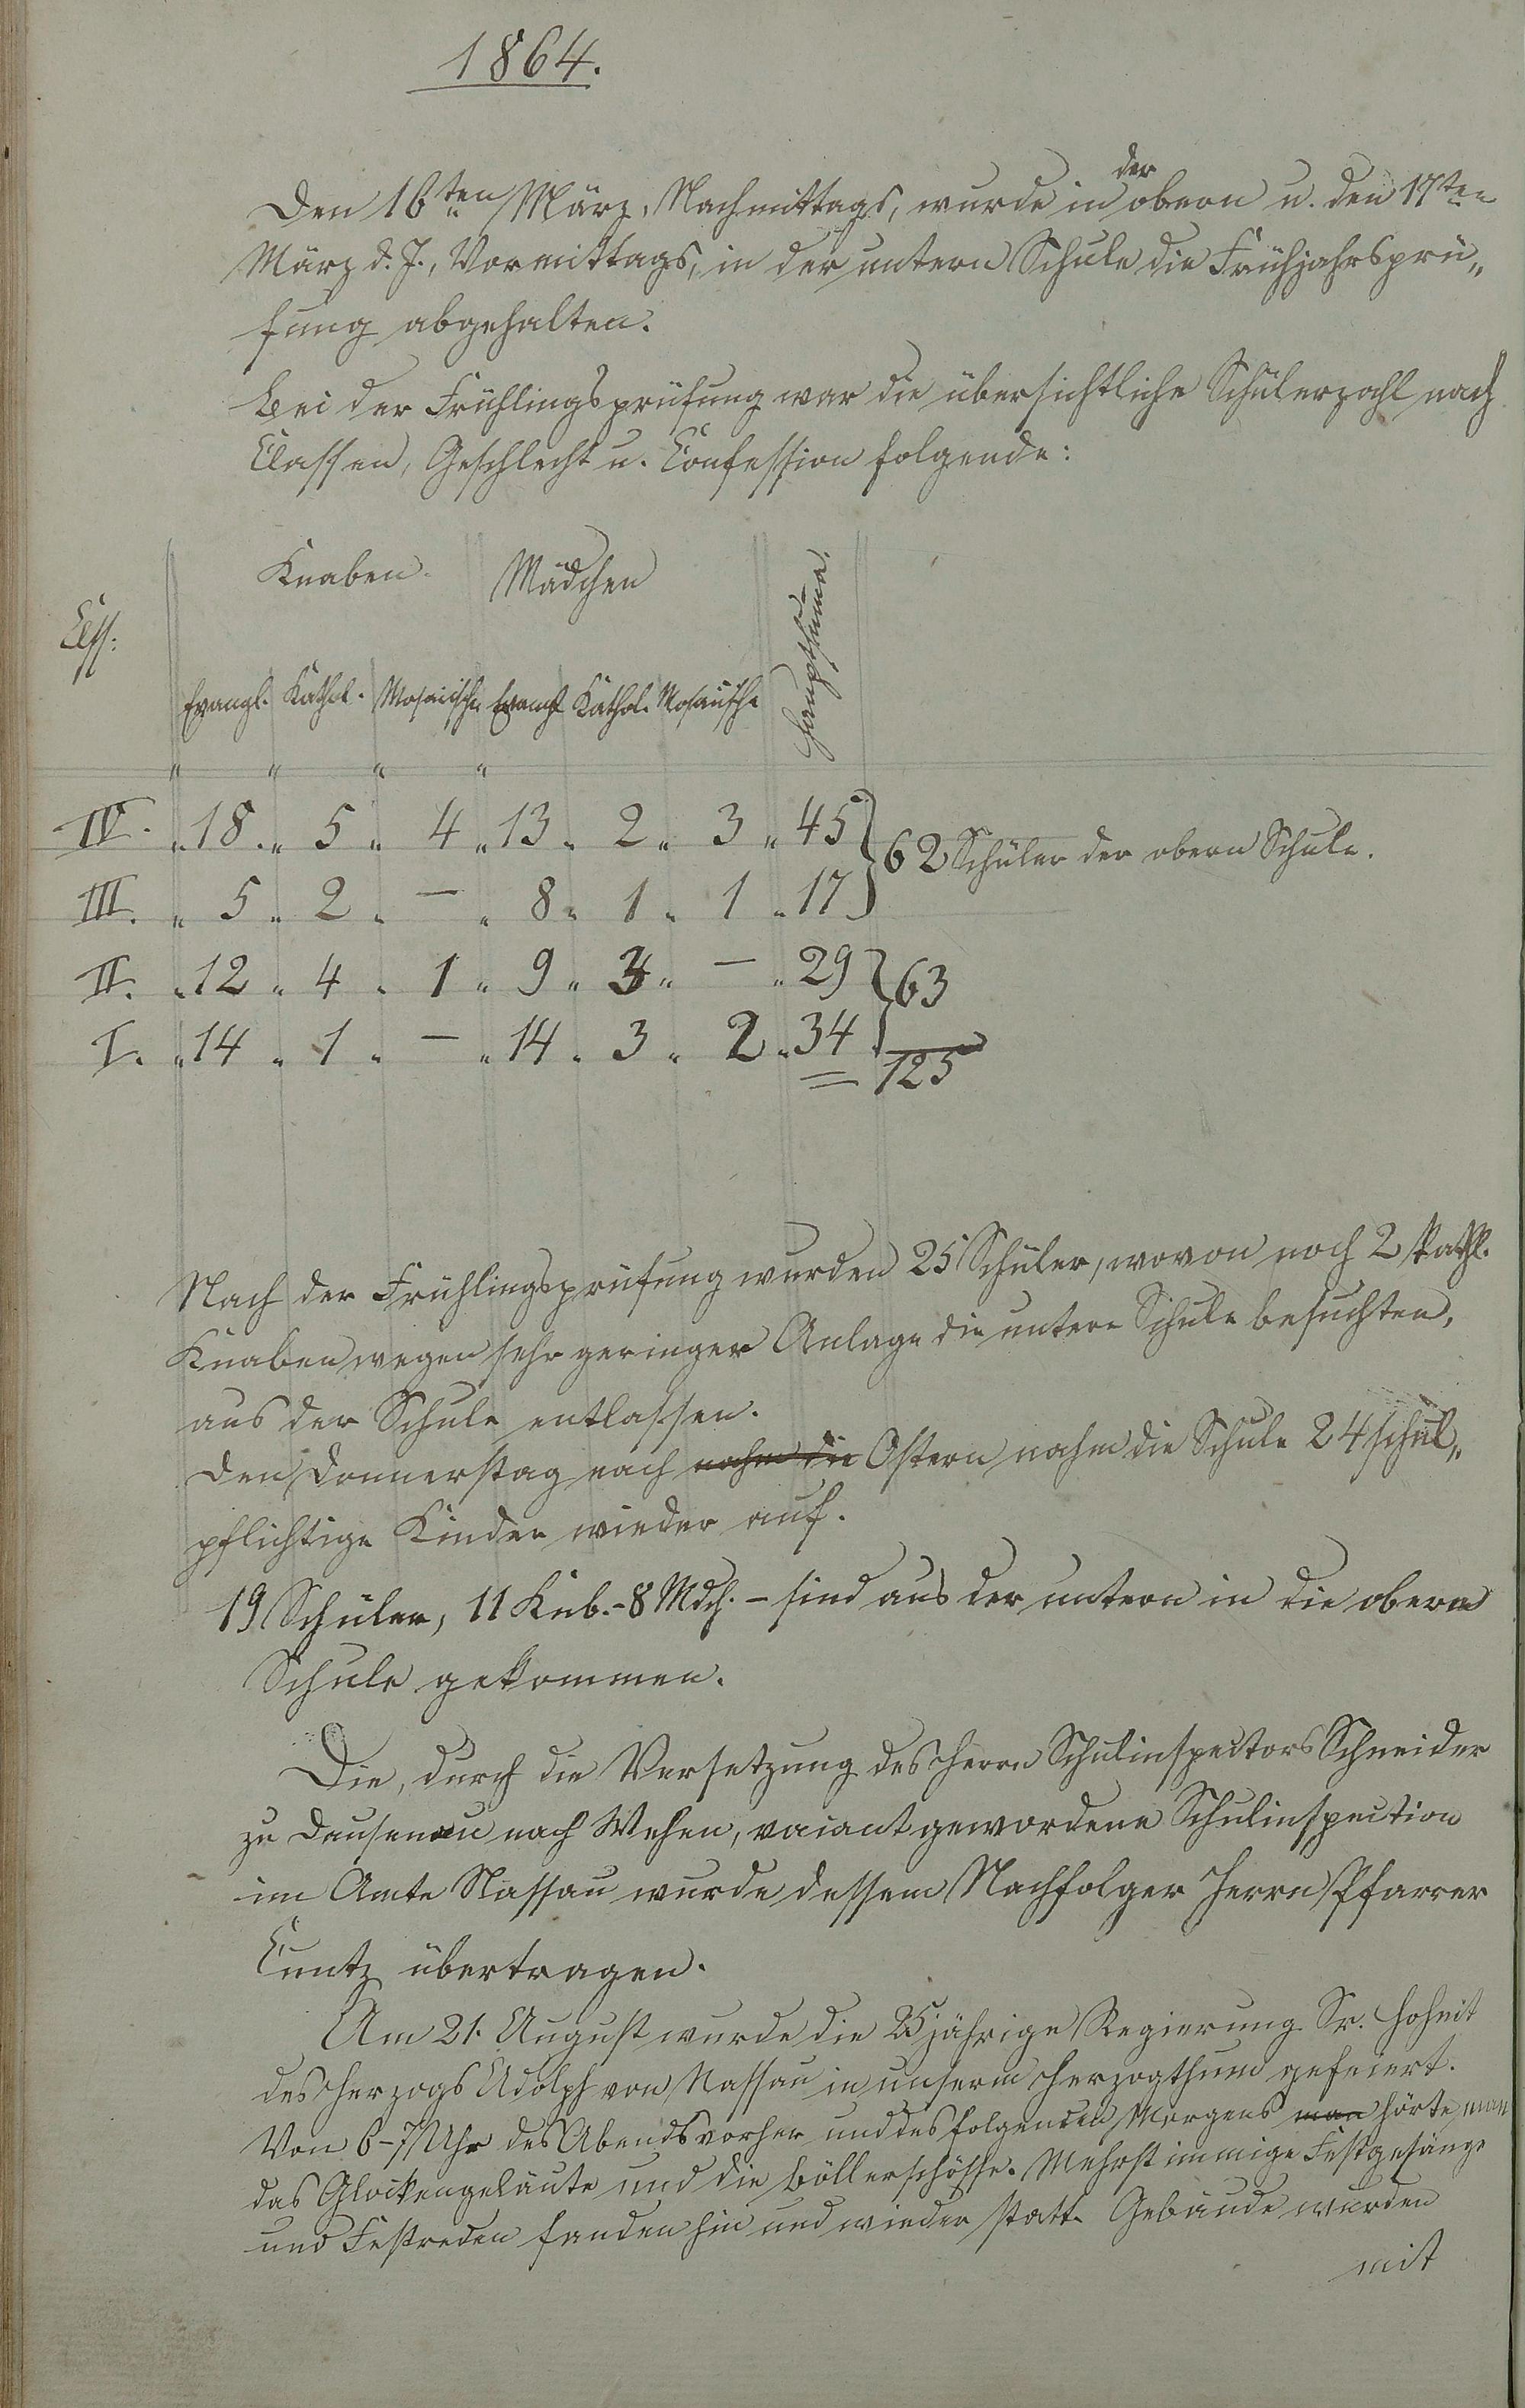 1864.
Den 16ten März, Nachmittags, wurde in der obern u. den 17ten
März d. J., Vormittags, in der untern Schule die Frühjahrsprü„
fung abgehalten.
Bei der Frühlingsprüfung war die übersichtliche Schülerzahl nach
Classen, Geschlecht u. Confession folgende:
Knaben. Mädchen
Clss. Hauptsumme.
Evangl. Kathol. Mosaische Evangl Kathol. Mosaische
" " " "
IV. " 18. " 5 " 4 " 13 " 2 " 3 " 45
62 Schüler der obern Schule.
III. " 5 " 2 " — " 8 " 1 " 1 " 17
II. " 12 " 4 " 1 " 9 " 3 " — " 29
63
I. " 14 " 1 " — " 14 " 3 " 2 " 34
= 125
Nach der Frühlingsprüfung wurden 25 Schüler, wovon noch 2 kathl.
Knaben wegen sehr geringer Anlage die untere Schule besuchten,
aus der Schule entlassen.
Den Donnerstag nach nahm die Ostern nahm die Schule 24 schul„
pflichtige Kinder wieder auf.
19 Schüler, 11 Knb. - 8 Mdch. - sind aus der untern in die obere
Schule gekommen.
Die, durch die Versetzung des Herrn Schulinspectors Schneider
zu Dausenau nach Wehen, vacant gewordene Schulinspection
im Amte Nassau wurde dessem Nachfolger Herrn Pfarrer
Cuntz übertragen.
Am 21. August wurde die 25 jährige Regierung Sr. Hoheit
des Herzogs Adolph von Nassau in unserm Herzogthum gefeiert.
Von 6-7 Uhr des Abends vorher und des folgenden Morgens man hörte man
das Glockengeläute und die Böllerschösse. Mehrstimmige Festgesänge
und Festreden fanden hin und wieder statt. Gebäude wurden
mit